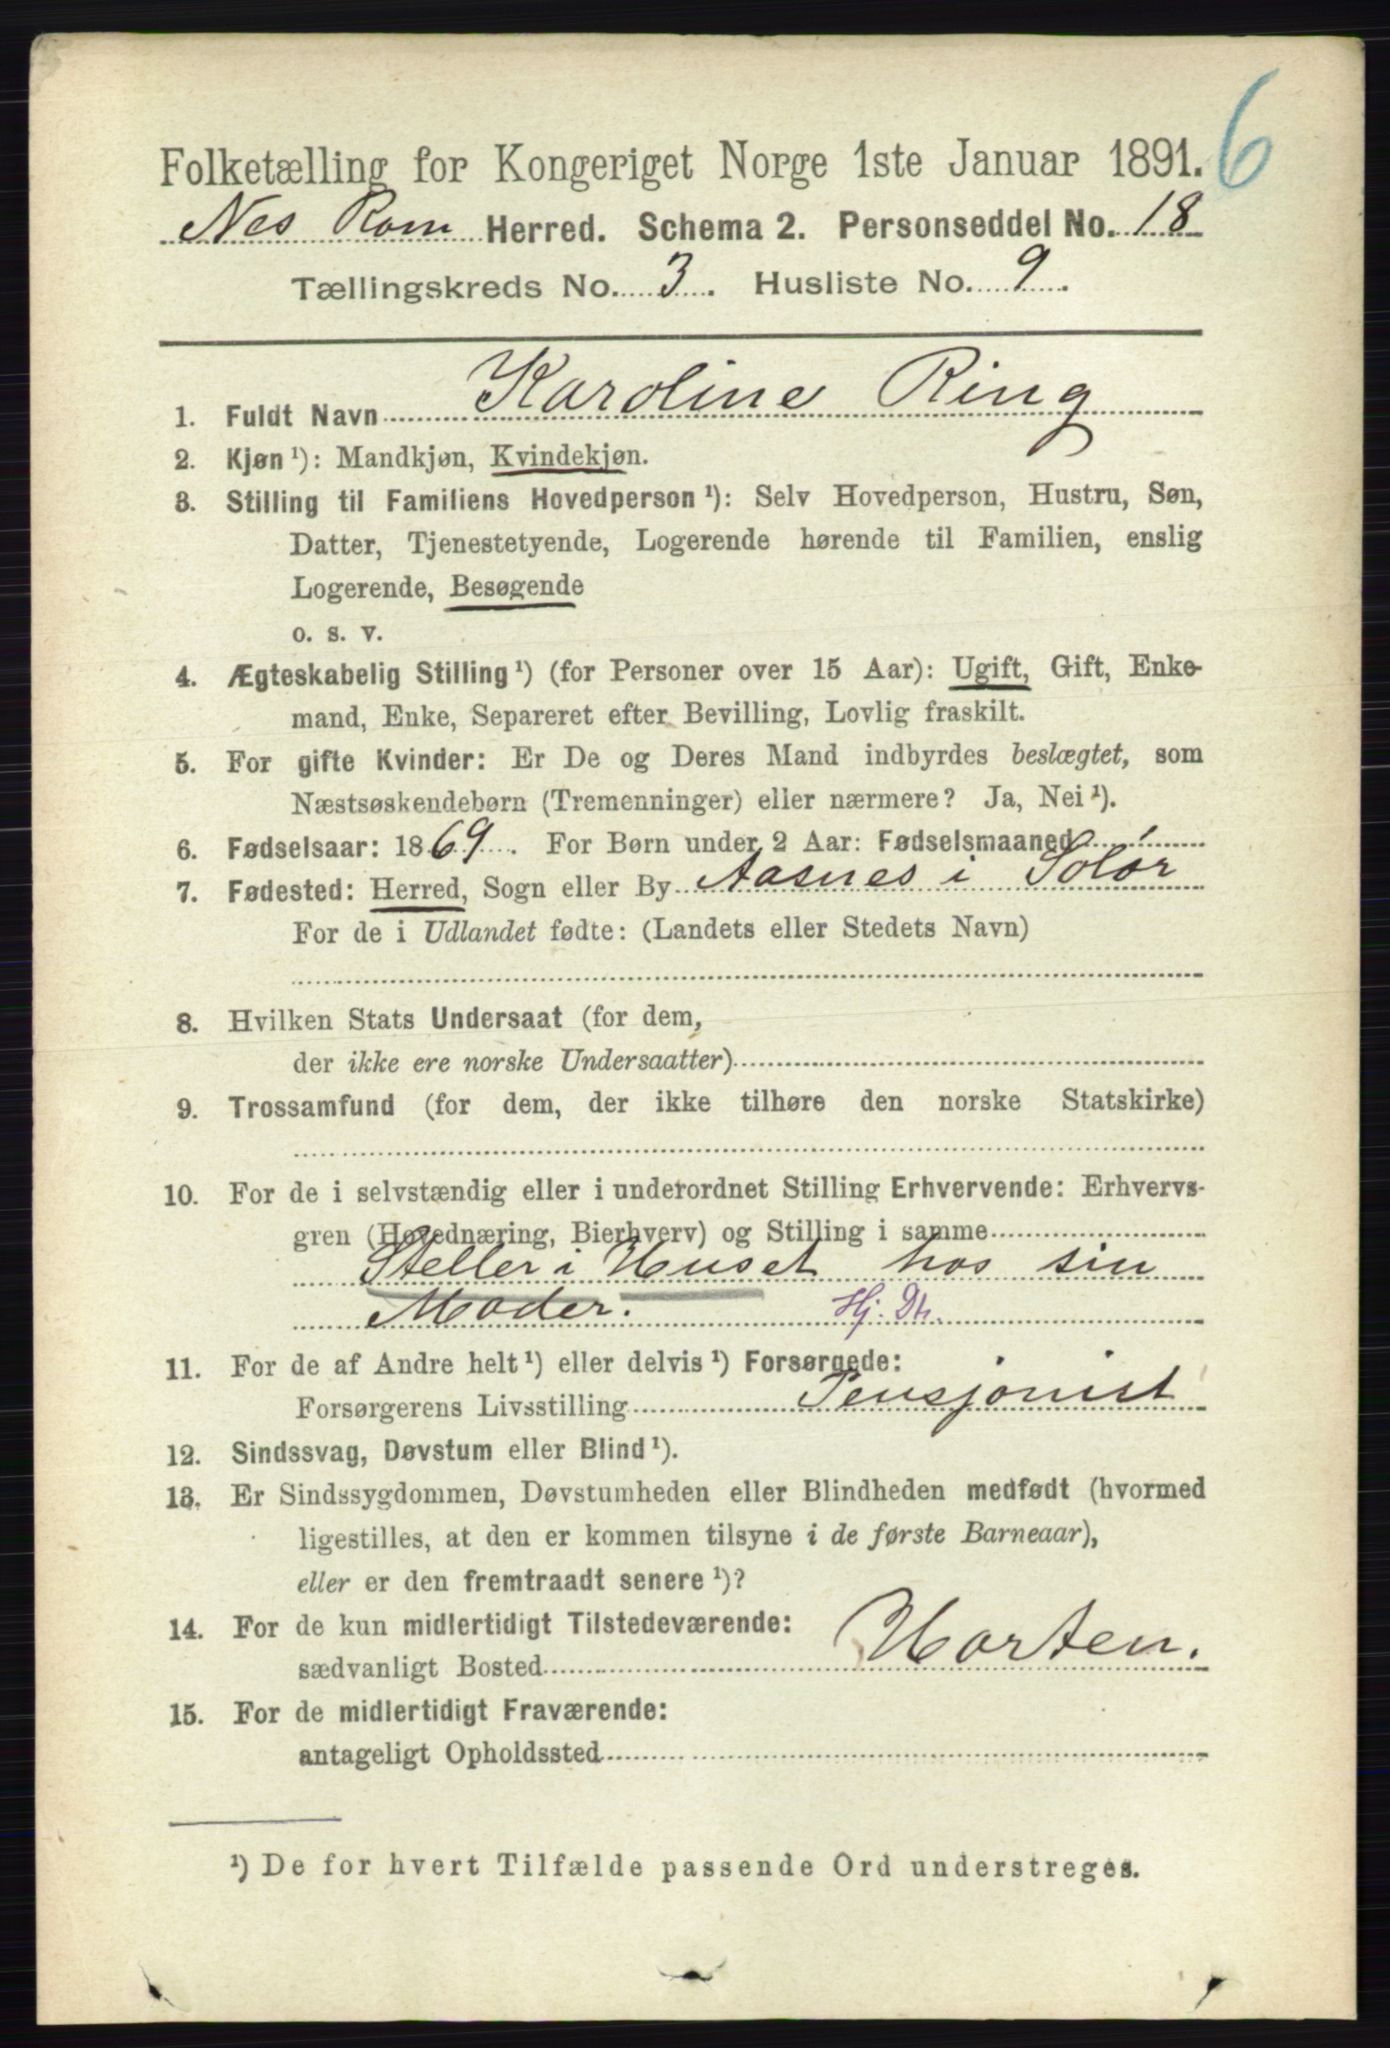 6
Folketælling for Kongeriget Norge 1ste Januar 1891.
Nes Rom Herred. Schema 2. Personseddel No. 18
Tællingskreds No. 3. Husliste No. 9.
1. Fuldt Navn Karoline Ring
2. Kjøn ¹): Mandkjøn, Kvindekjøn.
3. Stilling til Familiens Hovedperson ¹): Selv Hovedperson, Hustru, Søn,
Datter, Tjenestetyende, Logerende hørende til Familien, enslig
Logerende, Besøgende
o. s. v.
4. Ægteskabelig Stilling ¹) (for Personer over 15 Aar): Ugift, Gift, Enke-
mand, Enke, Separeret efter Bevilling, Lovlig fraskilt.
5. For gifte Kvinder: Er De og Deres Mand indbyrdes beslægtet, som
Næstsøskendebørn (Tremenninger) eller nærmere? Ja, Nei ¹).
6. Fødselsaar: 1869. For Børn under 2 Aar: Fødselsmaaned
7. Fødested: Herred, Sogn eller By Aasnes i Solør
For de i Udlandet fødte: (Landets eller Stedets Navn)
8. Hvilken Stats Undersaat (for dem,
der ikke ere norske Undersaatter)
9. Trossamfund (for dem, der ikke tilhøre den norske Statskirke)
10. For de i selvstændig eller i underordnet Stilling Erhvervende: Erhvervs-
gren (Hovednæring, Bierhverv) og Stilling i samme
Steller i Huset hos sin
Moder. Hj. Dt.
11. For de af Andre helt ¹) eller delvis ¹) Forsørgede:
Forsørgerens Livsstilling Pensjonist
12. Sindssvag, Døvstum eller Blind ¹).
13. Er Sindssygdommen, Døvstumheden eller Blindheden medfødt (hvormed
ligestilles, at den er kommen tilsyne i de første Barneaar),
eller er den fremtraadt senere ¹)?
14. For de kun midlertidigt Tilstedeværende:
sædvanligt Bosted Horten.
15. For de midlertidigt Fraværende:
antageligt Opholdssted
¹) De for hvert Tilfælde passende Ord understreges.